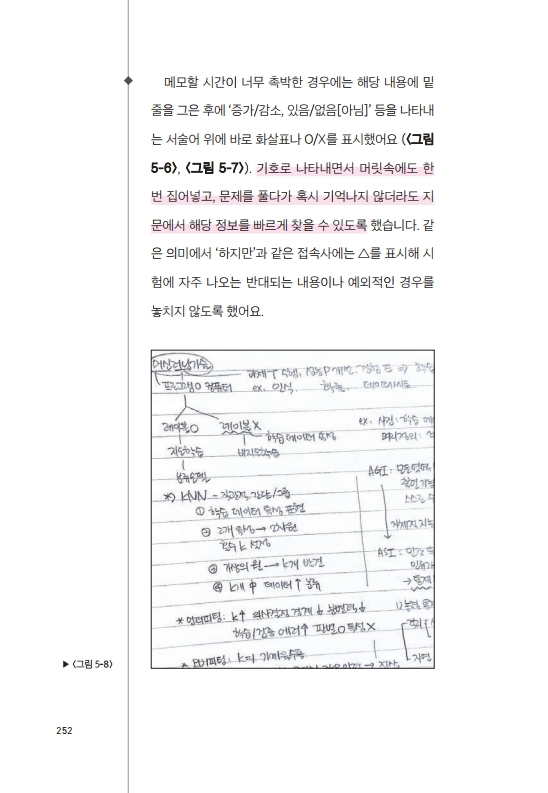 메모할 시간이 너무 촉박한 경우에는 해당 내용에 밑
줄을 그은 후에 ‘증가/감소, 있음/없음[아님]’ 등을 나타내
는 서술어 위에 바로 화살표나 O/X를 표시했어요 (<그림
5-6>, <그림 5-7>). 기호로 나타내면서 머릿속에도 한
번 집어넣고, 문제를 풀다가 혹시 기억나지 않더라도 지
문에서 해당 정보를 빠르게 찾을 수 있도록 했습니다. 같
은 의미에서 ‘하지만’과 같은 접속사에는 △를 표시해 시
험에 자주 나오는 반대되는 내용이나 예외적인 경우를
놓치지 않도록 했어요.
머신러닝기술
과제 T 수행, 성능 P 개선, 경험 E ⇒
프로그램 O 컴퓨터 ex. 인식, 데이터
레이블O 레이블X ex. 사진: 학습 데
학습 데이터 특성
지도학습 비지도학습
분류모델 AGI: 모든 영역
*) KNN - 직관적, 간단
① 학습 데이터 특성 표현
② 2개 특성 → 2차원
자체지
상수 k 설정
ASI: 인간
③ 가상의 원 → k개 발견
④ k개 中 데이터↑ 분류
* 언더피팅: k↑ 의사결정 경계↓ 분별력↓
학습/검증 에러↑ 판별O 특성X
* 오버피팅: k=1
▶ <그림 5-8>
252